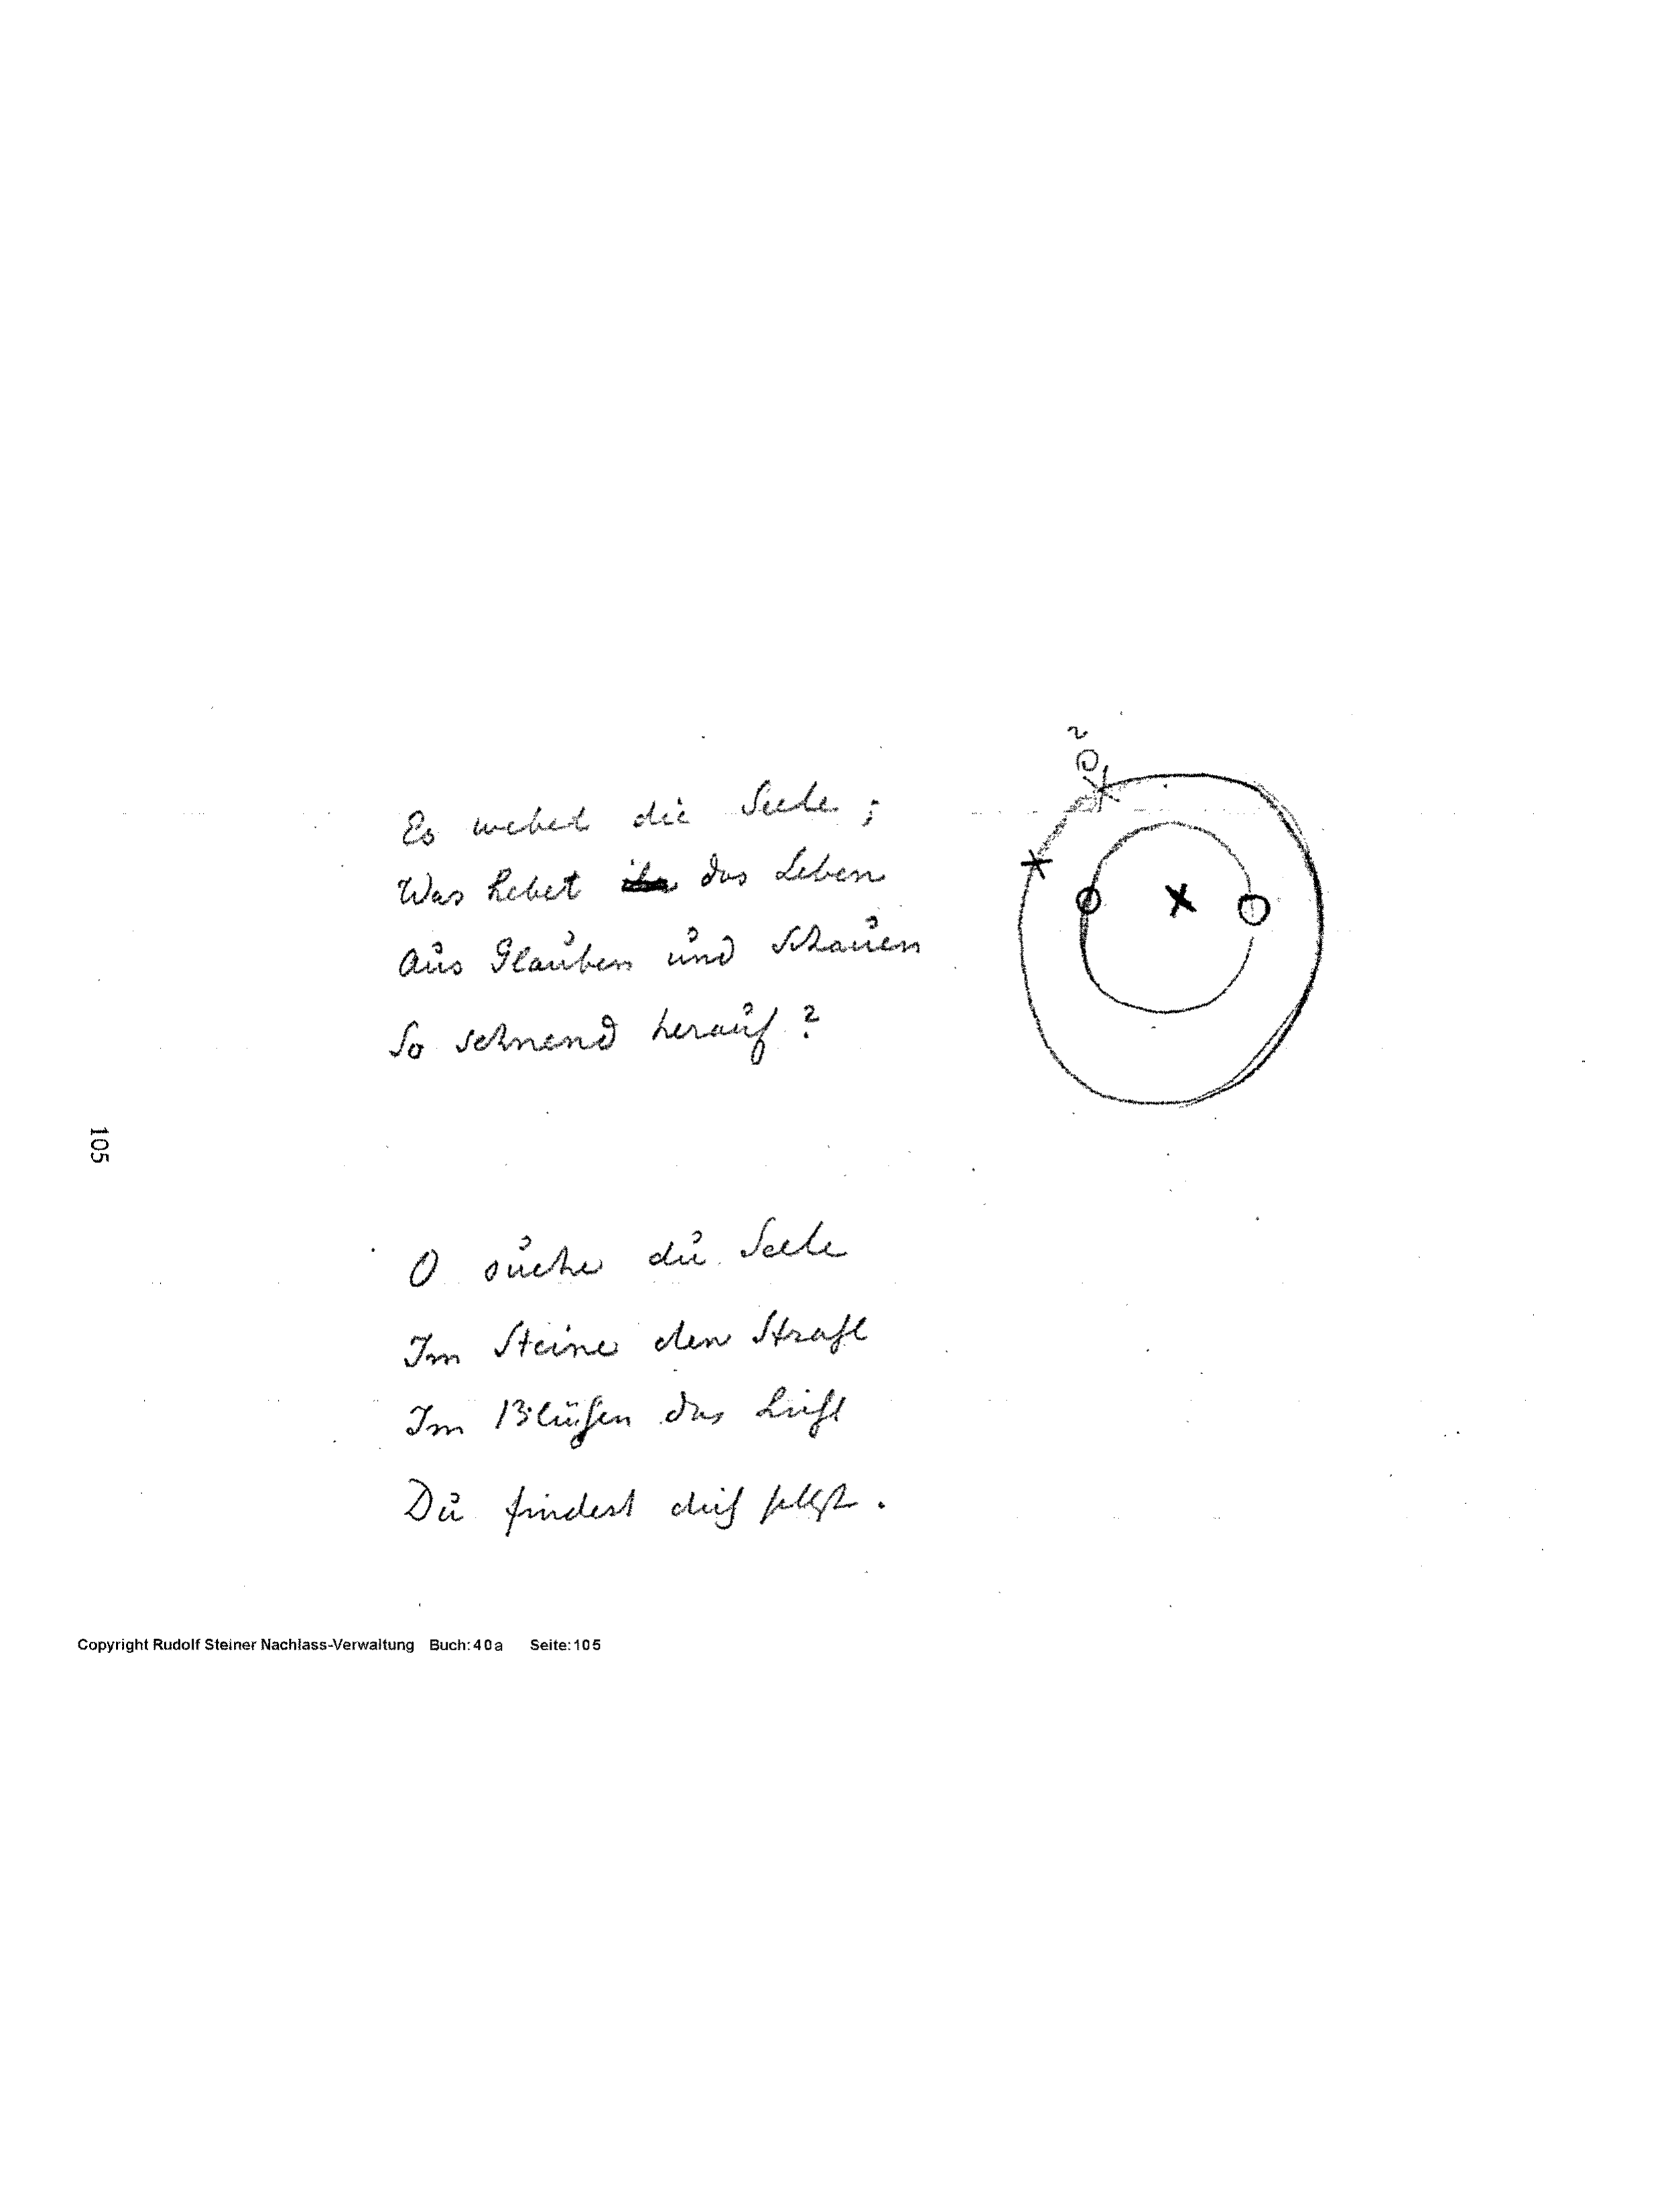 Es webet die Seele;
Was hebet das Leben
Aus Glauben und Schauen
So sehnend herauf?
105
O suche du Seele
Im Steine den Strahl
Im Blühen das Licht
Du findest dich selbst.
Copyright Rudolf Steiner Nachlass-Verwaltung Buch:40a Seite:105